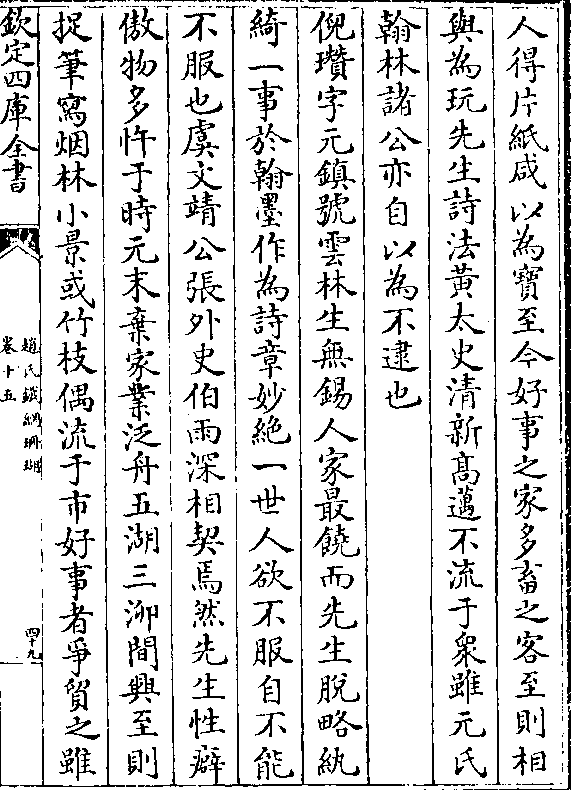 人得片紙咸以為寶至今好事之家多畜之客至則相
與為玩先生詩法黃太史清新髙邁不流于衆雖元氏
翰林諸公亦自以為不逮也
倪瓚字元鎮號雲林生無錫人家最饒而先生脫略紈
綺一事於翰墨作為詩章妙絶一世人欲不服自不能
不服也虞文靖公張外史伯雨深相契焉然先生性癖
傲物多忤于時元末棄家業泛舟五湖三泖間興至則
捉筆寫烟林小景或竹枝偶流于市好事者爭貿之雖
欽定四庫全書
趙氏鐵網珊瑚
卷十五
四十九